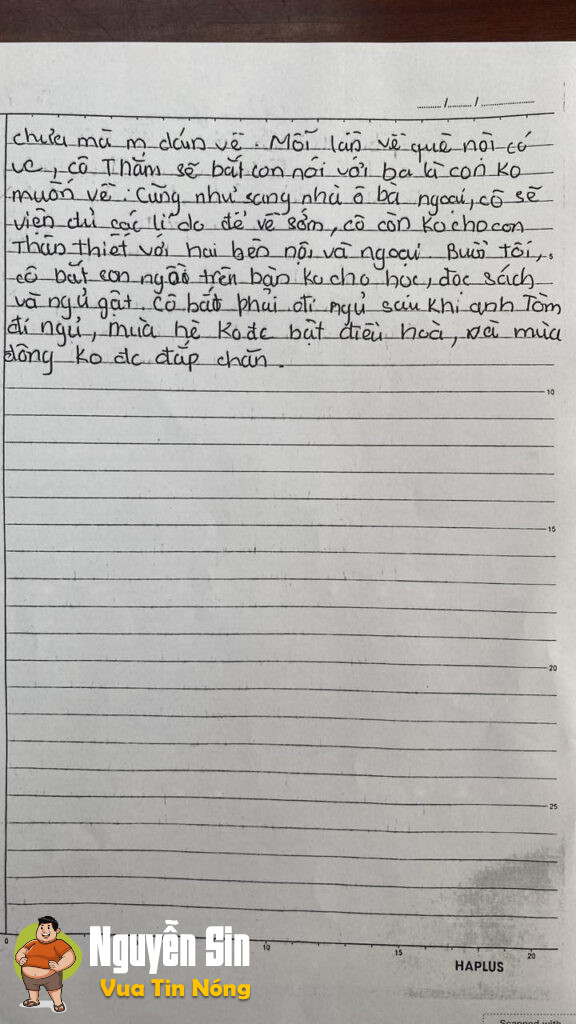 ....../....../..............
chưa mà m dán về. Mỗi lần về quê nội có
vc, cô Thắm sẽ bắt con nói với ba là con ko
muốn về. Cũng như sang nhà ô bà ngoại, cô sẽ
viện đủ các lí do để về sớm, cô còn ko cho con
thân thiết với hai bên nội và ngoại. Buổi tối,
cô bắt con ngồi trên bàn ko cho học, đọc sách
và ngủ gật. Cô bắt phải đi ngủ sau khi anh Tôm
đi ngủ, mùa hè ko đc bật điều hoà, và mùa
đông ko đc đắp chăn.
10
15
20
25
0 10 15 20
HAPLUS
Nguyễn Sin
Vua Tin Nóng
Scanned with